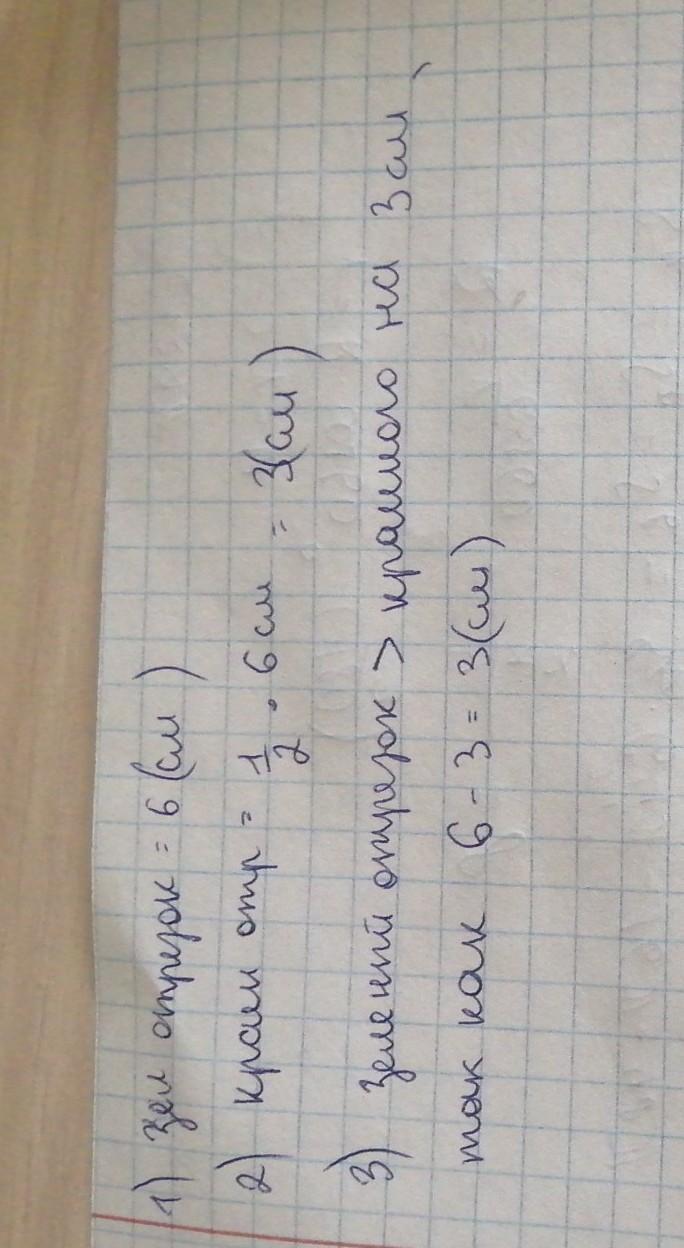 1) Зел отрезок = 6 (см)
2) Красн отр = 1/2 · 6 см = 3(см)
3) Зеленый отрезок > красного на 3 см,
так как 6 - 3 = 3(см)